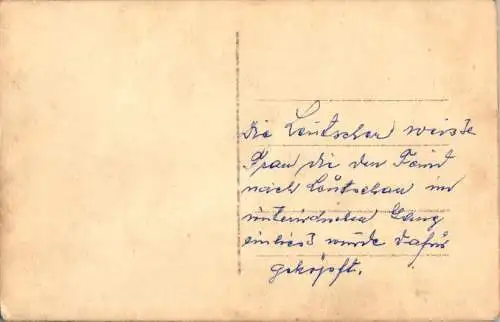 Die Leutscher weisse
Frau die den Feind
nach Leutschau im
unterirdischen Gang
einliess wurde dafür
geköpft.